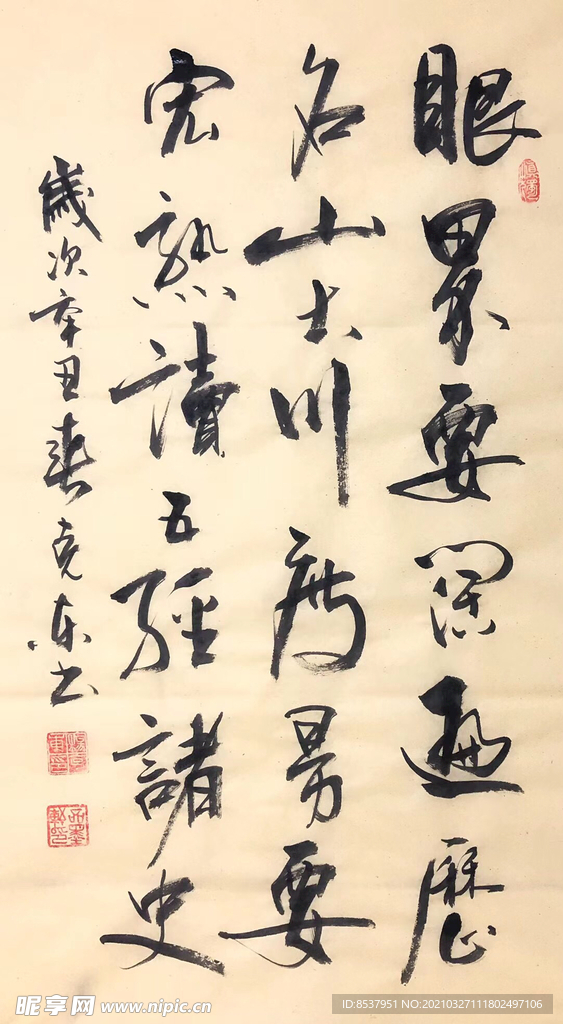 眼界要闊遍歷
名山大川度量要
宏熟讀五經諸史
歲次辛丑春克东书
昵享网 www.nipic.cn
ID:8537951 NO:20210327111802497106